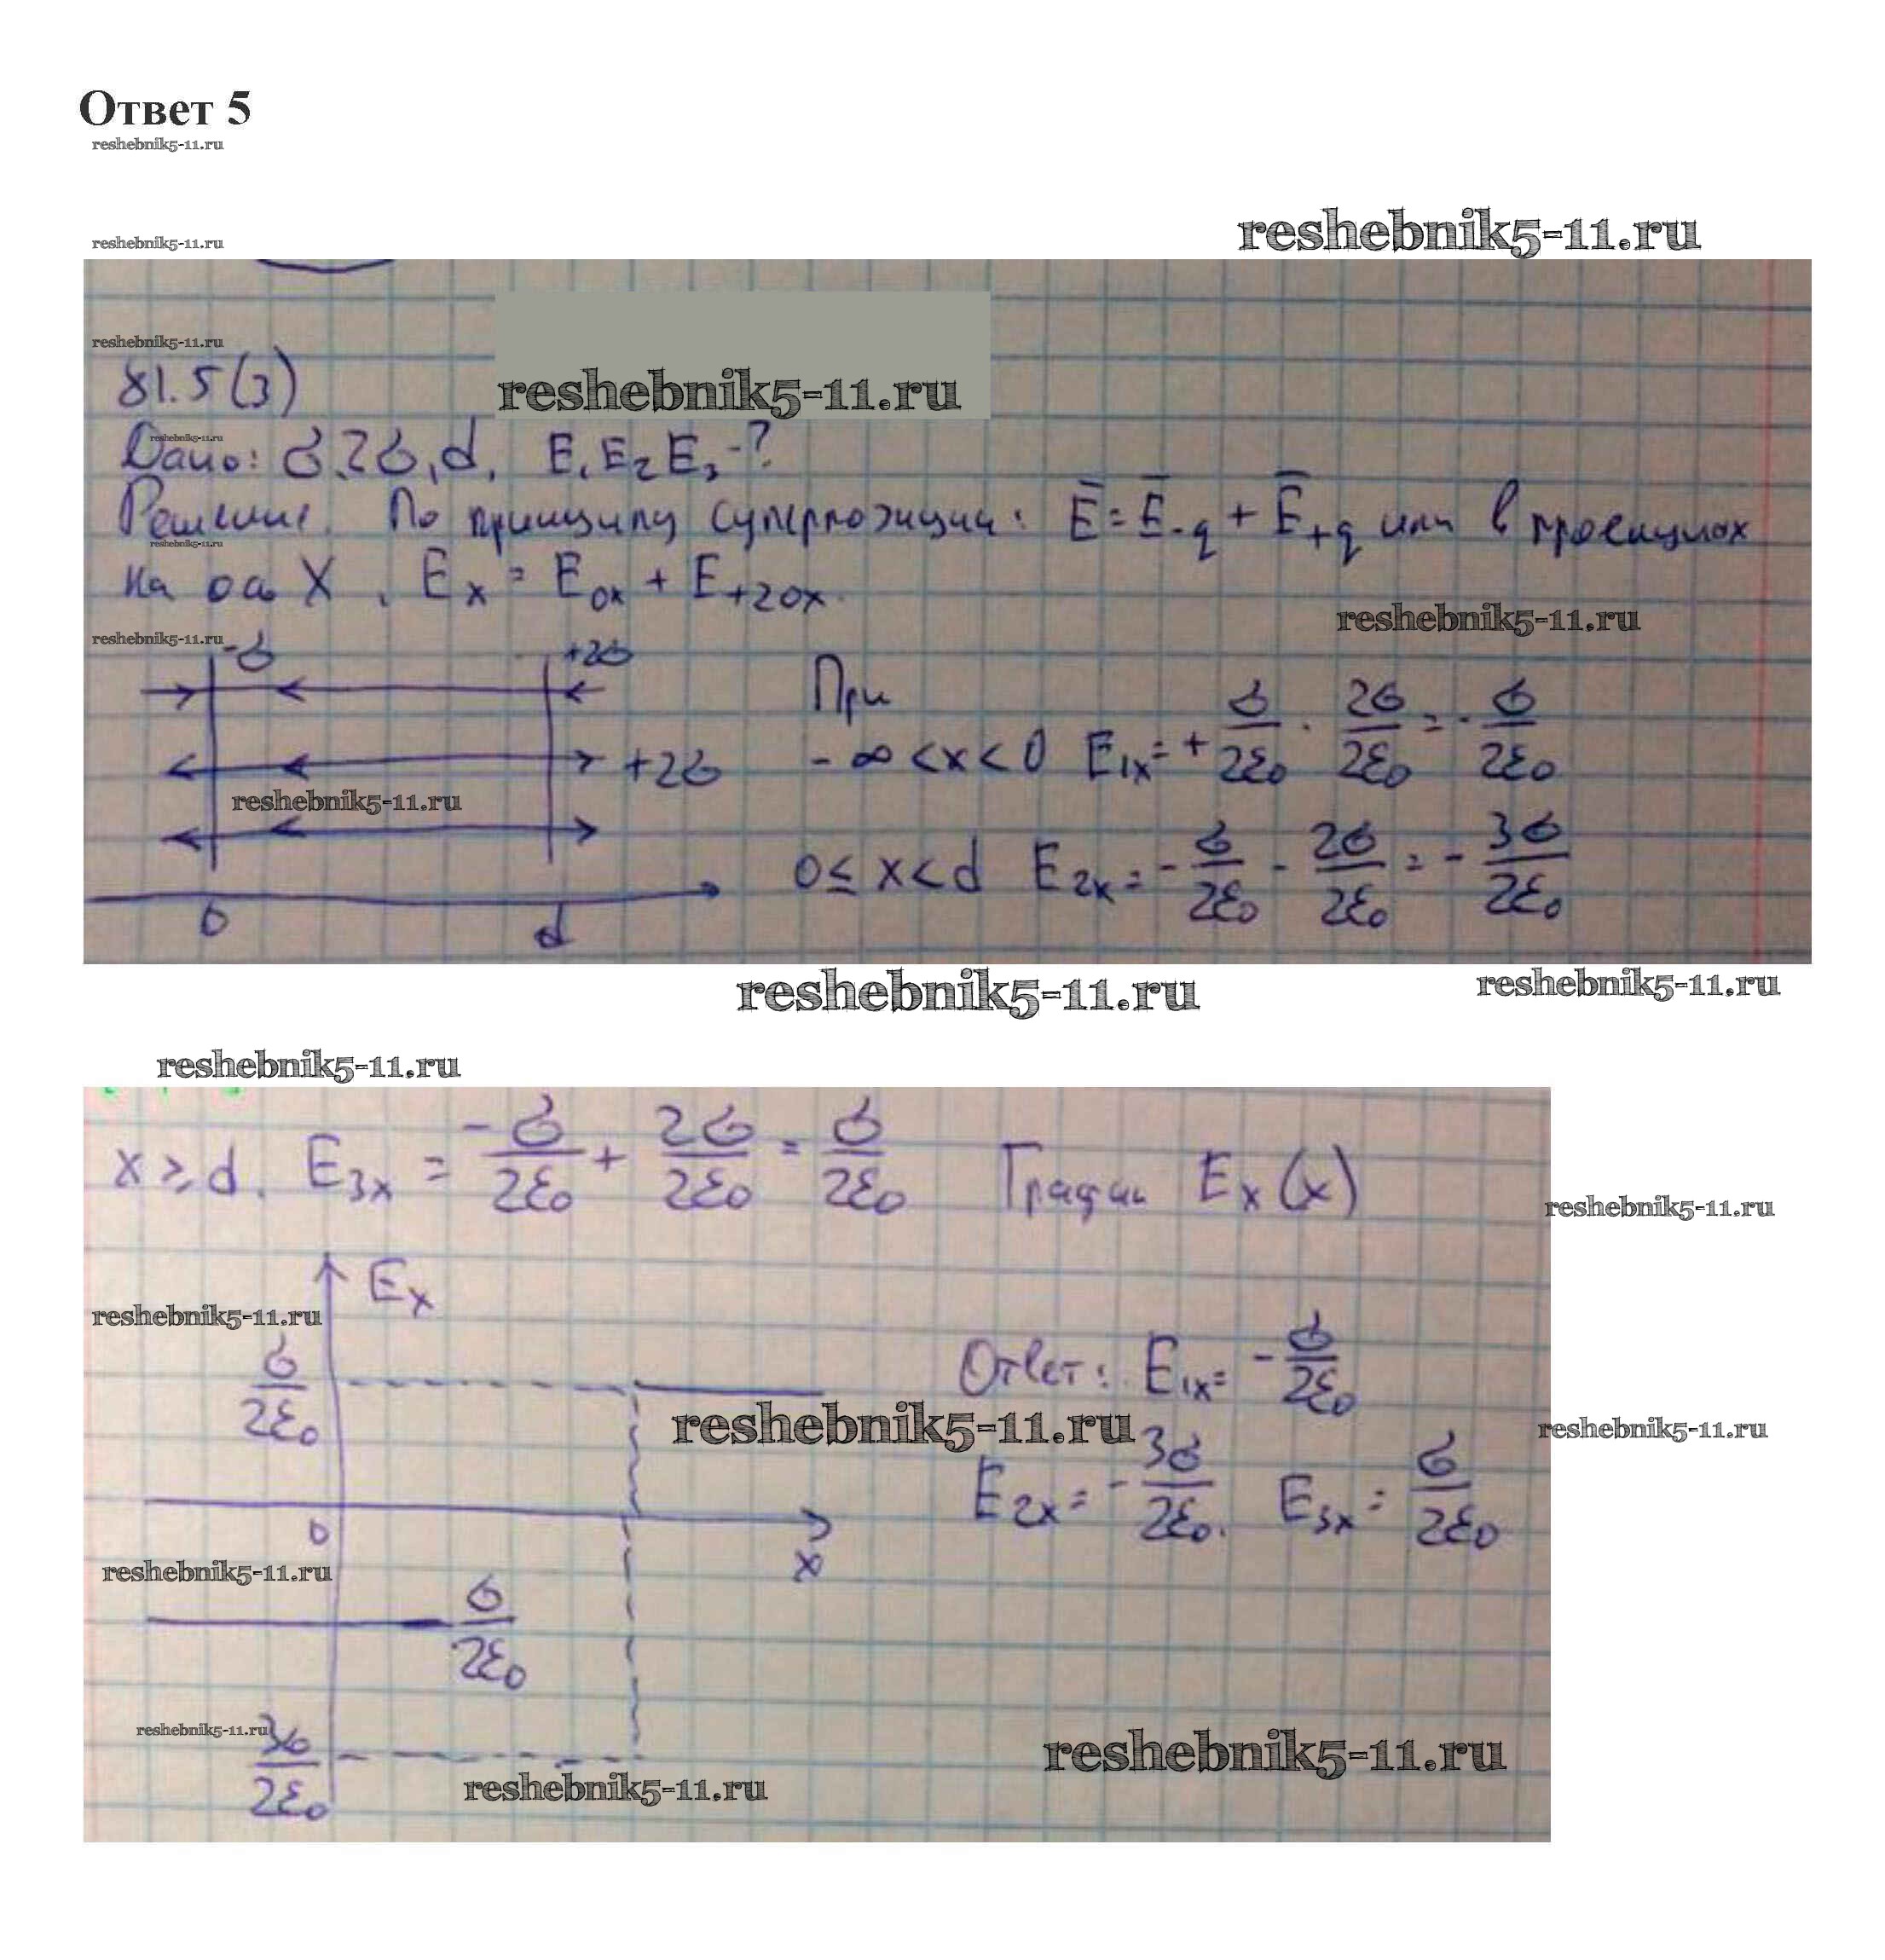 Ответ 5
reshebnik5-11.ru
reshebnik5-11.ru
reshebnik5-11.ru
reshebnik5-11.ru
81.5(3)
reshebnik5-11.ru
reshebnik5-11.ru
Дано: б, 2б, d, E₁ E₂ E₃ -?
Решение. По принципу суперпозиции: E̅ = E̅-q + E̅+q или в проекциях
reshebnik5-11.ru
на ось X. Eₓ = E₀ₓ + E+20x.
reshebnik5-11.ru
reshebnik5-11.ru
-б +2б
При
-∞ < x < 0 E₁ₓ = + б/2ε₀ · 2б/2ε₀ = - б/2ε₀
+2б
reshebnik5-11.ru
0 ≤ x < d E₂ₓ = - б/2ε₀ - 2б/2ε₀ = - 3б/2ε₀
0 d
reshebnik5-11.ru
reshebnik5-11.ru
reshebnik5-11.ru
x ≥ d. E₃ₓ = -б/2ε₀ + 2б/2ε₀ = б/2ε₀ График Eₓ(x)
reshebnik5-11.ru
Eₓ
reshebnik5-11.ru
б/2ε₀
Ответ: E₁ₓ = - б/2ε₀
reshebnik5-11.ru
reshebnik5-11.ru
E₂ₓ = - 3б/2ε₀. E₃ₓ = б/2ε₀
0
x
reshebnik5-11.ru
б/2ε₀
reshebnik5-11.ru
3б/2ε₀
reshebnik5-11.ru
reshebnik5-11.ru